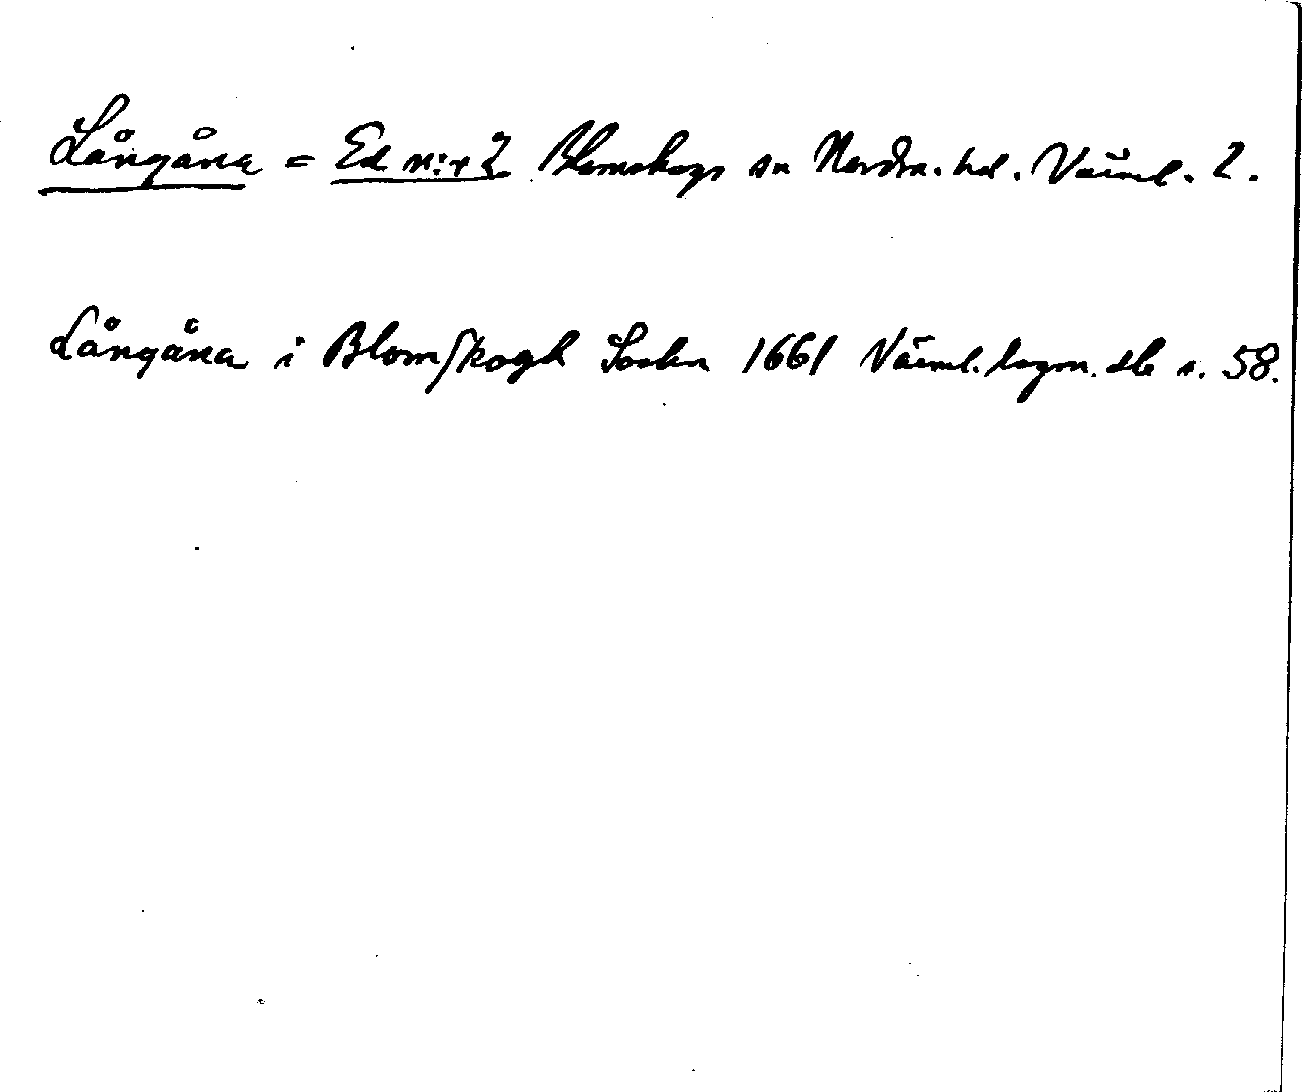 Långåna = Ed n:r 2 Blomskogs sn Nordm. hd. Värml. l.
Långåna i Blomſkogh Sochn 1661 Värml. lagm. db s. 58.